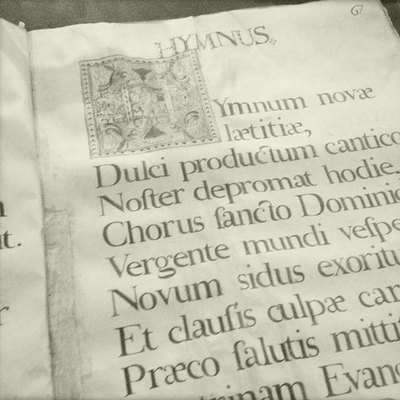 67
HYMNUS.
HYmnum novæ
lætitiæ,
Dulci productum cantico
Noſter depromat hodie,
Chorus ſancto Dominic
Vergente mundi veſpe
Novum sidus exoritu
Et clauſis culpæ car
Præco ſalutis mittit
trinam Evan